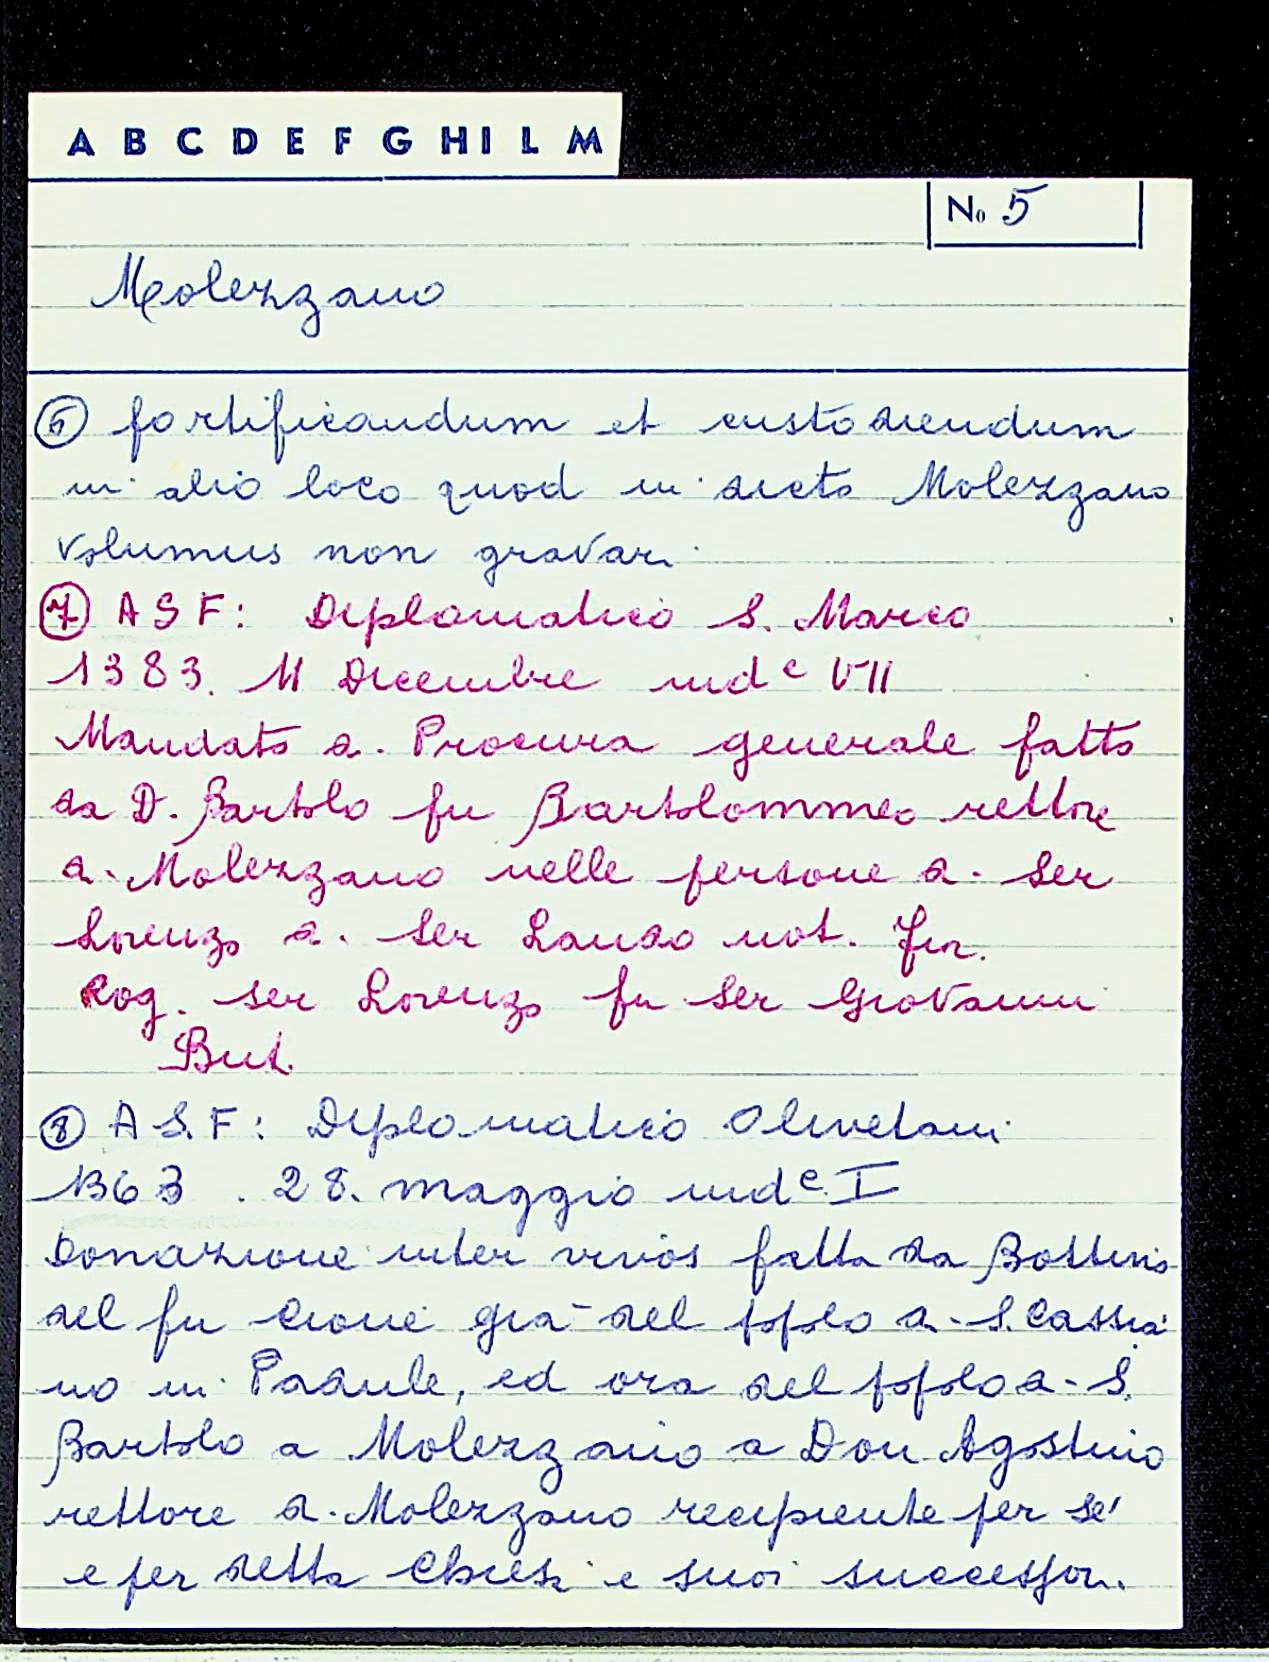 A B C D E F G H I L M
No 5
Molezzano
⑥ fortificandum et custodiendum
in alio loco quod in dicto Molezzano
volumus non gravari
⑦ A S F: Diplomatico S. Marco
1383. 11 Dicembre indᵉ VII
Mandato di Procura generale fatto
da D. Bartolo fu Bartolommeo rettore
di Molezzano nelle persone di Ser
Lorenzo di Ser Lando not. fior.
Rog. ser Lorenzo fu Ser Giovanni
But.
⑧ A S. F: Diplomatico Olivetani
1363. 28. maggio indᵉ I
Donazione inter vivos fatta da Bottino
del fu Cione già del popolo di S. Cassia
no in Padule, ed ora del popolo di S.
Bartolo a Molezzano a Don Agostino
rettore di Molezzano recipiente per sé
e per detta Chiesa e suoi successori.